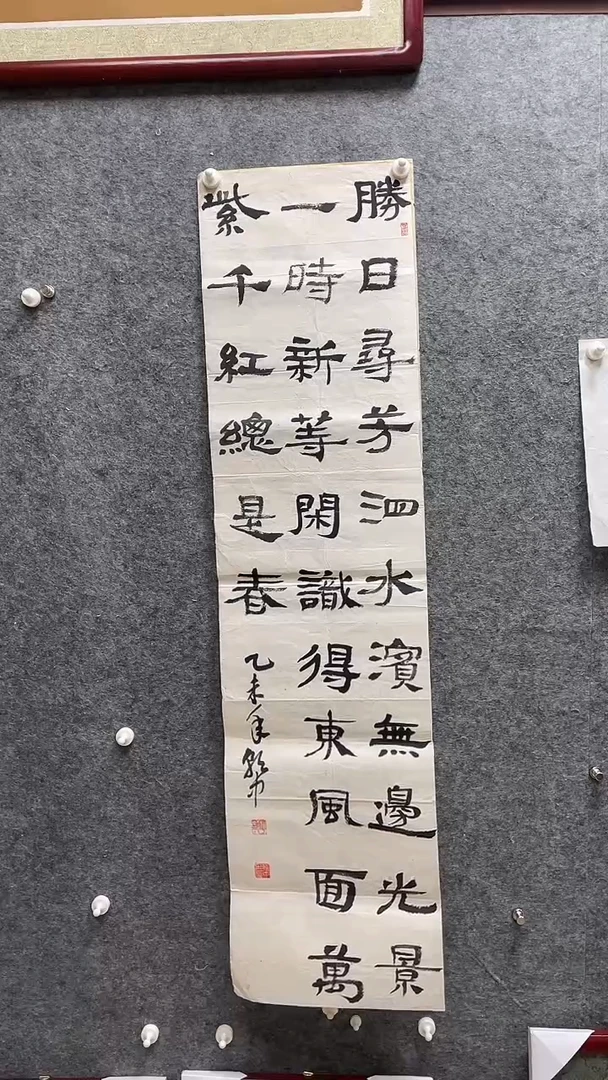 勝日尋芳泗水濱無邊光景
一時新等閑識得東風面萬
紫千紅總是春
乙未年